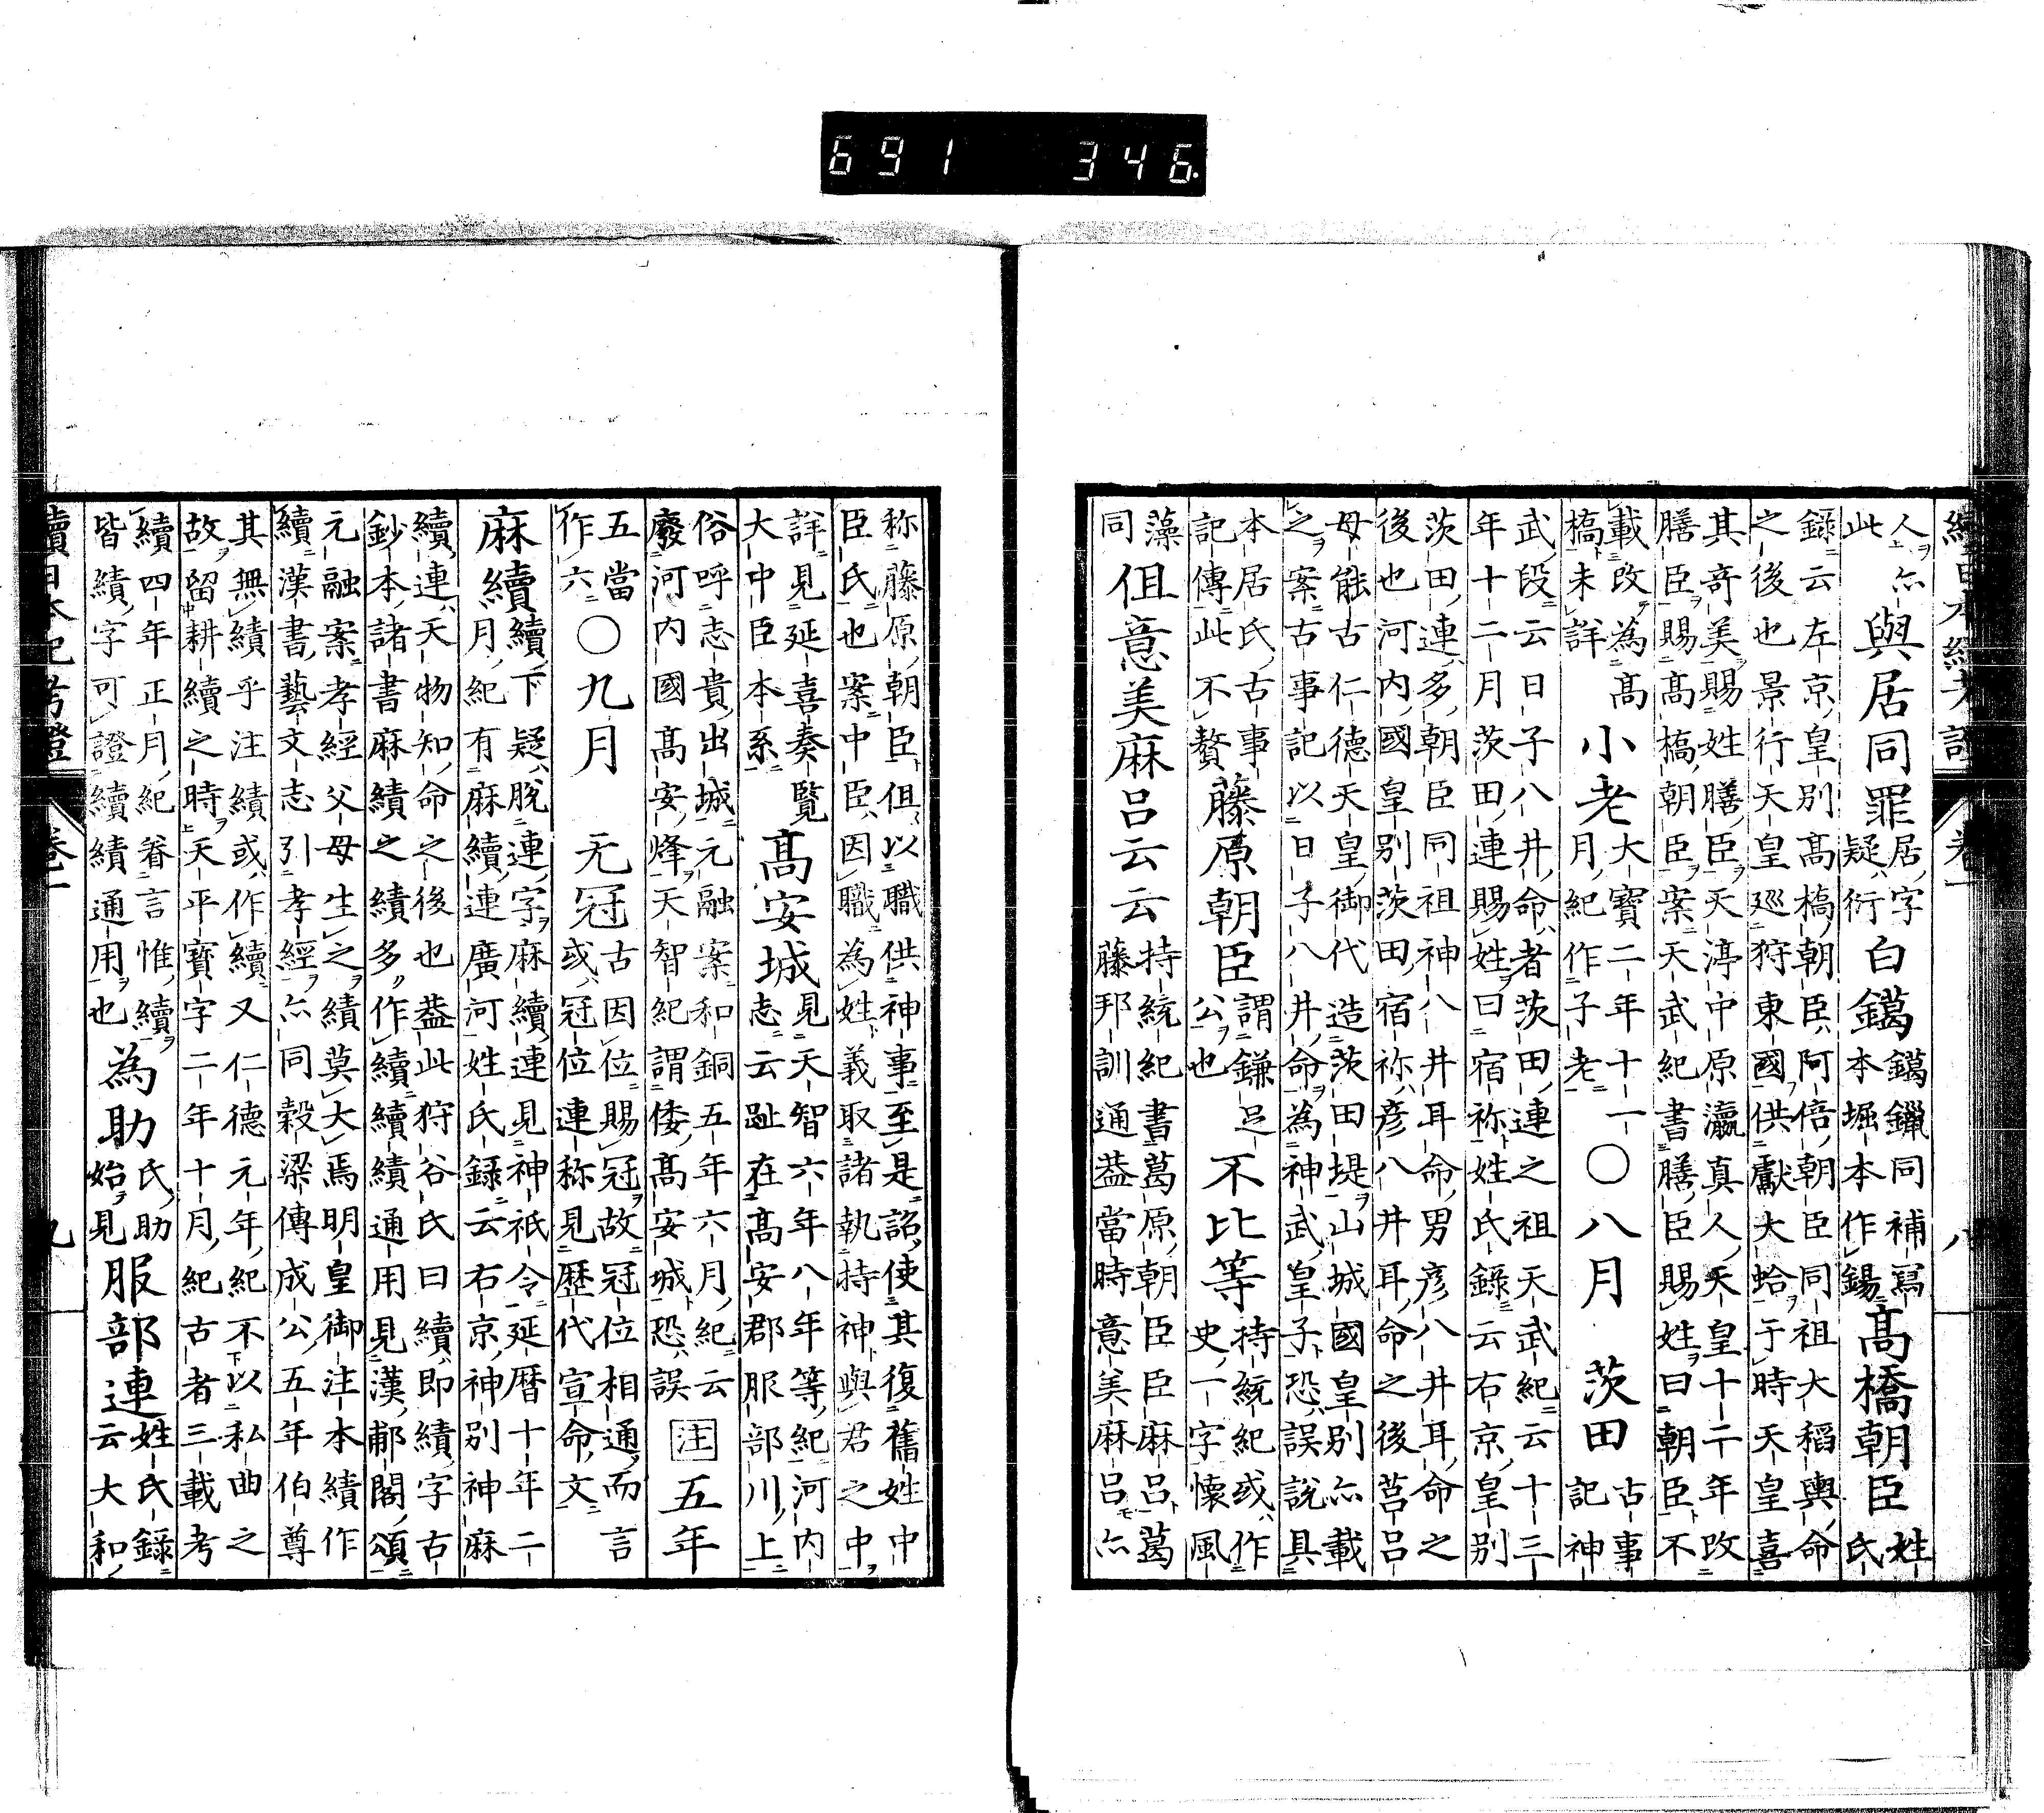 691 346
續日本紀考證 卷一 八
人亦
此 與居同罪 居字
疑衍 白鑞 鑞同補寫
本堀本作錫 高橋朝臣 姓
氏
錄云左京皇別高橋朝臣阿倍朝臣同祖大稻輿命
之後也景行天皇巡狩東國供獻大蛤于時天皇喜
其奇美賜姓膳臣天渟中原瀛真人天皇十二年改
膳臣賜高橋朝臣案天武紀書膳臣賜姓曰朝臣不
載改為高
橋未詳 小老 大寶二年十一
月紀作子老 ○八月 茨田 古事
記神
武段云日子八井命者茨田連之祖天武紀云十三
年十二月茨田連賜姓曰宿祢姓氏錄云右京皇別
茨田連多朝臣同祖神八井耳命男彥八井耳命之
後也河內國皇別茨田宿祢彥八井耳命之後莒呂
母能古仁德天皇御代造茨田堤山城國皇別亦載
之案古事記以日子八井命為神武皇子恐誤說具
本居氏古事
記傳此不贅 藤原朝臣 謂鎌足
公也 不比等 持統紀或作
史一字懷風
藻
同 伹意美麻呂云云 持統紀書葛原朝臣臣麻呂葛
藤邦訓通蓋當時意美麻呂亦
称藤原朝臣伹以職供神事至是詔使其復舊姓中
臣氏也案中臣因職為姓義取諸執持神與君之中
詳見延喜奏覽
大中臣本系 高安城 見天智六年八年等紀河內
志云趾在高安郡服部川上
俗呼志貴出城元融案和銅五年六月紀云
廢河內國高安烽天智紀謂倭高安城恐誤 注 五年
五當
作六 ○九月 无冠 古因位賜冠故冠位相通而言
或冠位連称見歷代宣命文
麻續 續下疑脫連字麻續連見神祇令延曆十年二
月紀有麻續連廣河姓氏錄云右京神別神麻
續連天物知命之後也蓋此狩谷氏曰續即績字古
鈔本諸書麻績之績多作續續績通用見漢郙閣頌
元融案孝經父母生之績莫大焉明皇御注本績作
續漢書藝文志引孝經亦同穀梁傳成公五年伯尊
其無績乎注績或作續又仁德元年紀不以私曲之
故留耕績之時天平寶字二年十月紀古者三載考
續四年正月紀眷言惟續
皆績字可證續績通用也 為助 氏助
始見 服部連 姓氏錄
云大和
續日本紀考證 卷一 九